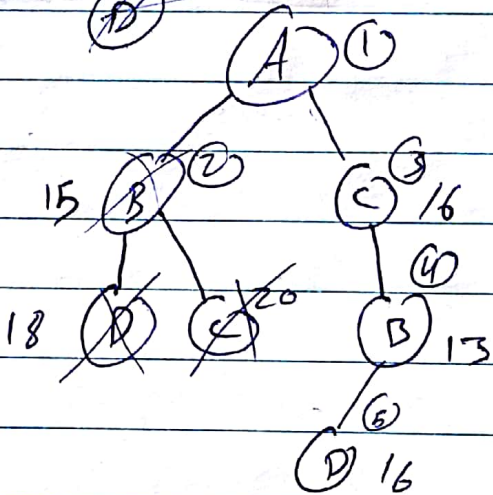 D
A ①
15 B ② C ③ 16
④
18 D C 20 B 13
⑤
D 16